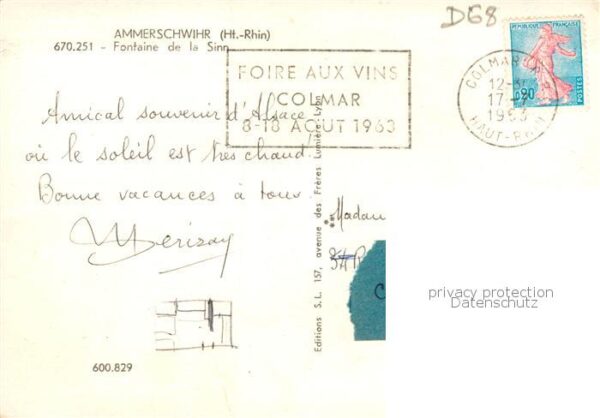 AMMERSCHWIHR (Ht.-Rhin)
670.251 - Fontaine de la Sinn
D68
REPUBLIQUE FRANÇAISE
0,20
POSTES
FOIRE AUX VINS
COLMAR
8-18 AOUT 1963
COLMAR
12-30
17-7
1963
HAUT-RHIN
Amical souvenir d'Alsace
où le soleil est très chaud.
Bonne vacances à tous.
Editions S.L. 157, avenue des Frères Lumière-Lyon
Madam
privacy protection
Datenschutz
600.829